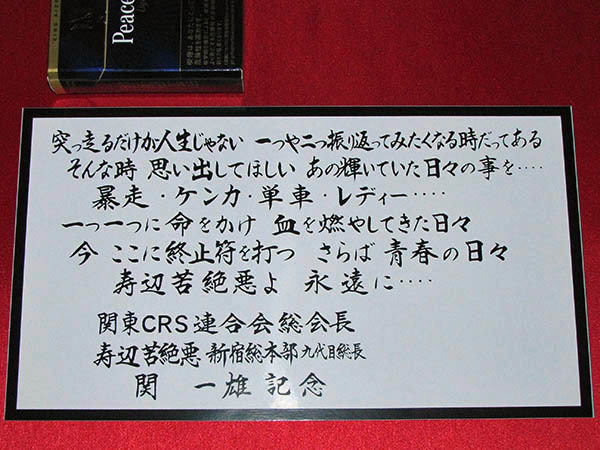 KING SIZE
Peace
突っ走るだけが人生じゃない 一つや二つ振り返ってみたくなる時だってある
そんな時 思い出してほしい あの輝いていた日々の事を‥‥
暴走・ケンカ・単車・レディー‥‥
一つ一つに命をかけ 血を燃やしてきた日々
今 ここに終止符を打つ さらば青春の日々
寿辺苦絶悪よ 永遠に‥‥
関東CRS連合会総会長
寿辺苦絶悪 新宿総本部九代目総長
関 一雄記念